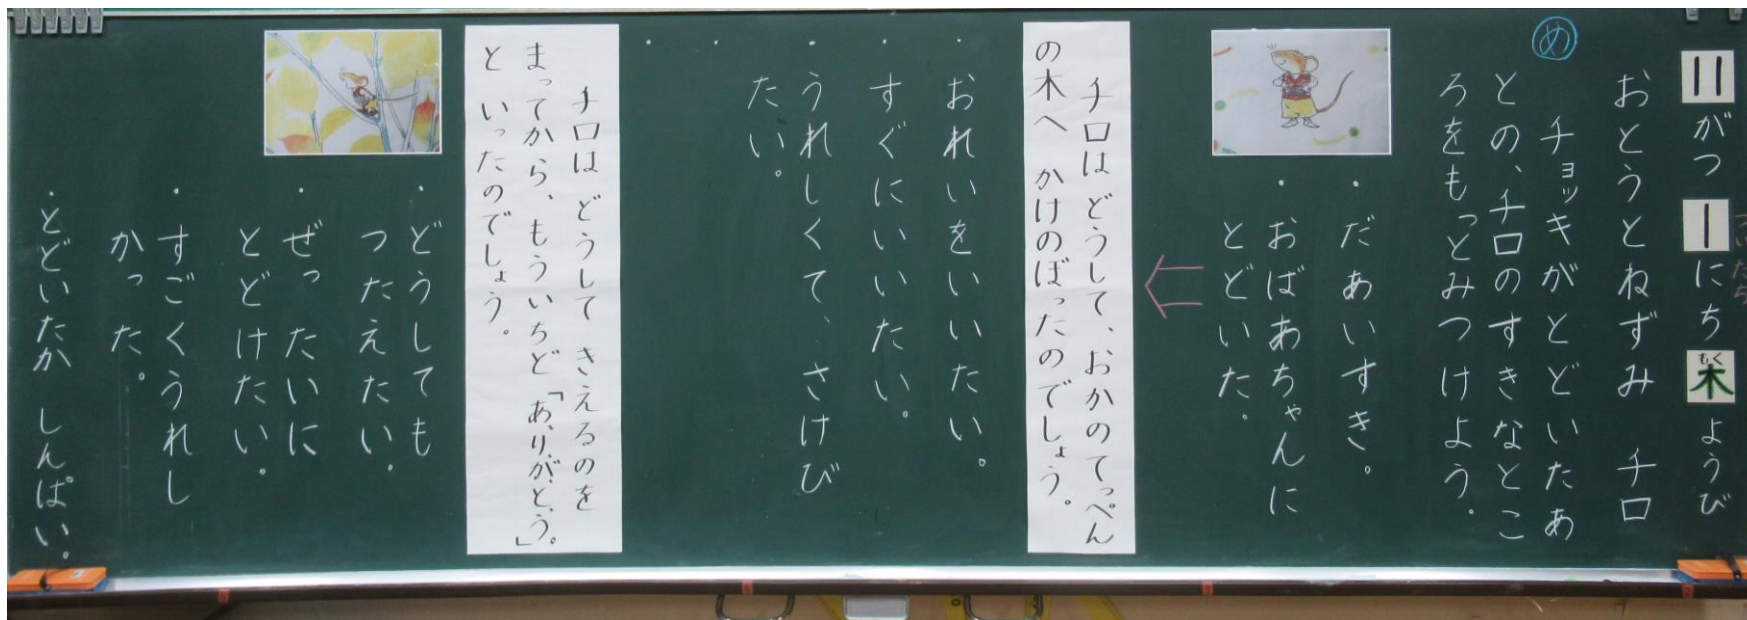 11がつ1にち木ようび
もく
ついたち
おとうとねずみ チロ
め
チョッキがとどいたあ
との、チロのすきなとこ
ろをもっとみつけよう。
・だあいすき。
・おばあちゃんに
とどいた。
チロは どうして、おかのてっぺん
の木へ かけのぼったのでしょう。
・おれいをいいたい。
・すぐにいいたい。
・うれしくて、さけび
たい。
・
・
チロは どうして きえるのを
まってから、もういちど 「あ、り、が、と、う。」
と いったのでしょう。
・どうしても
つたえたい。
・ぜったいに
とどけたい。
・すごくうれし
かった。
・とどいたか しんぱい。